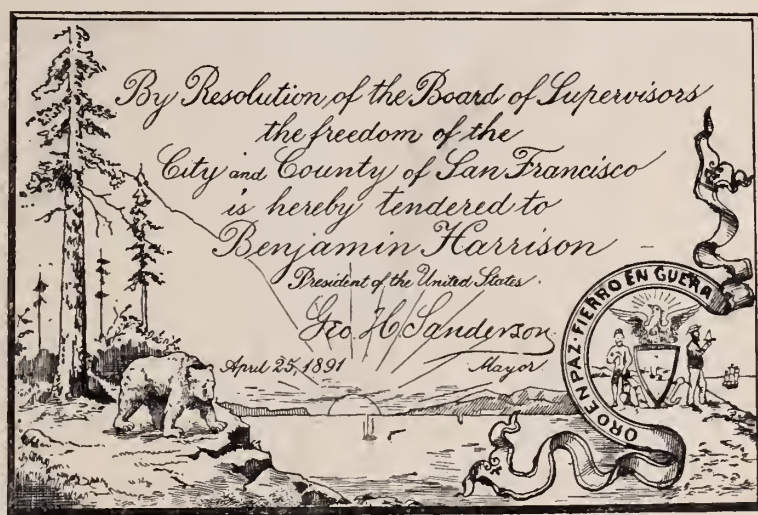 By Resolution of the Board of Supervisors
the freedom of the
City and County of San Francisco
is hereby tendered to
Benjamin Harrison
President of the United States.
Geo. H. Sanderson
April 25, 1891 Mayor.
ORO EN PAZ · FIERRO EN GUERRA